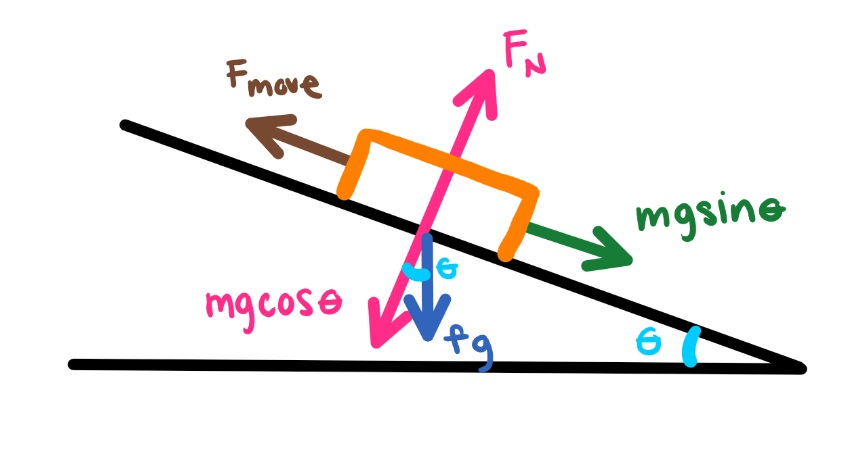 F_N
F_move
mgsinθ
θ
mgcosθ
fg
θ